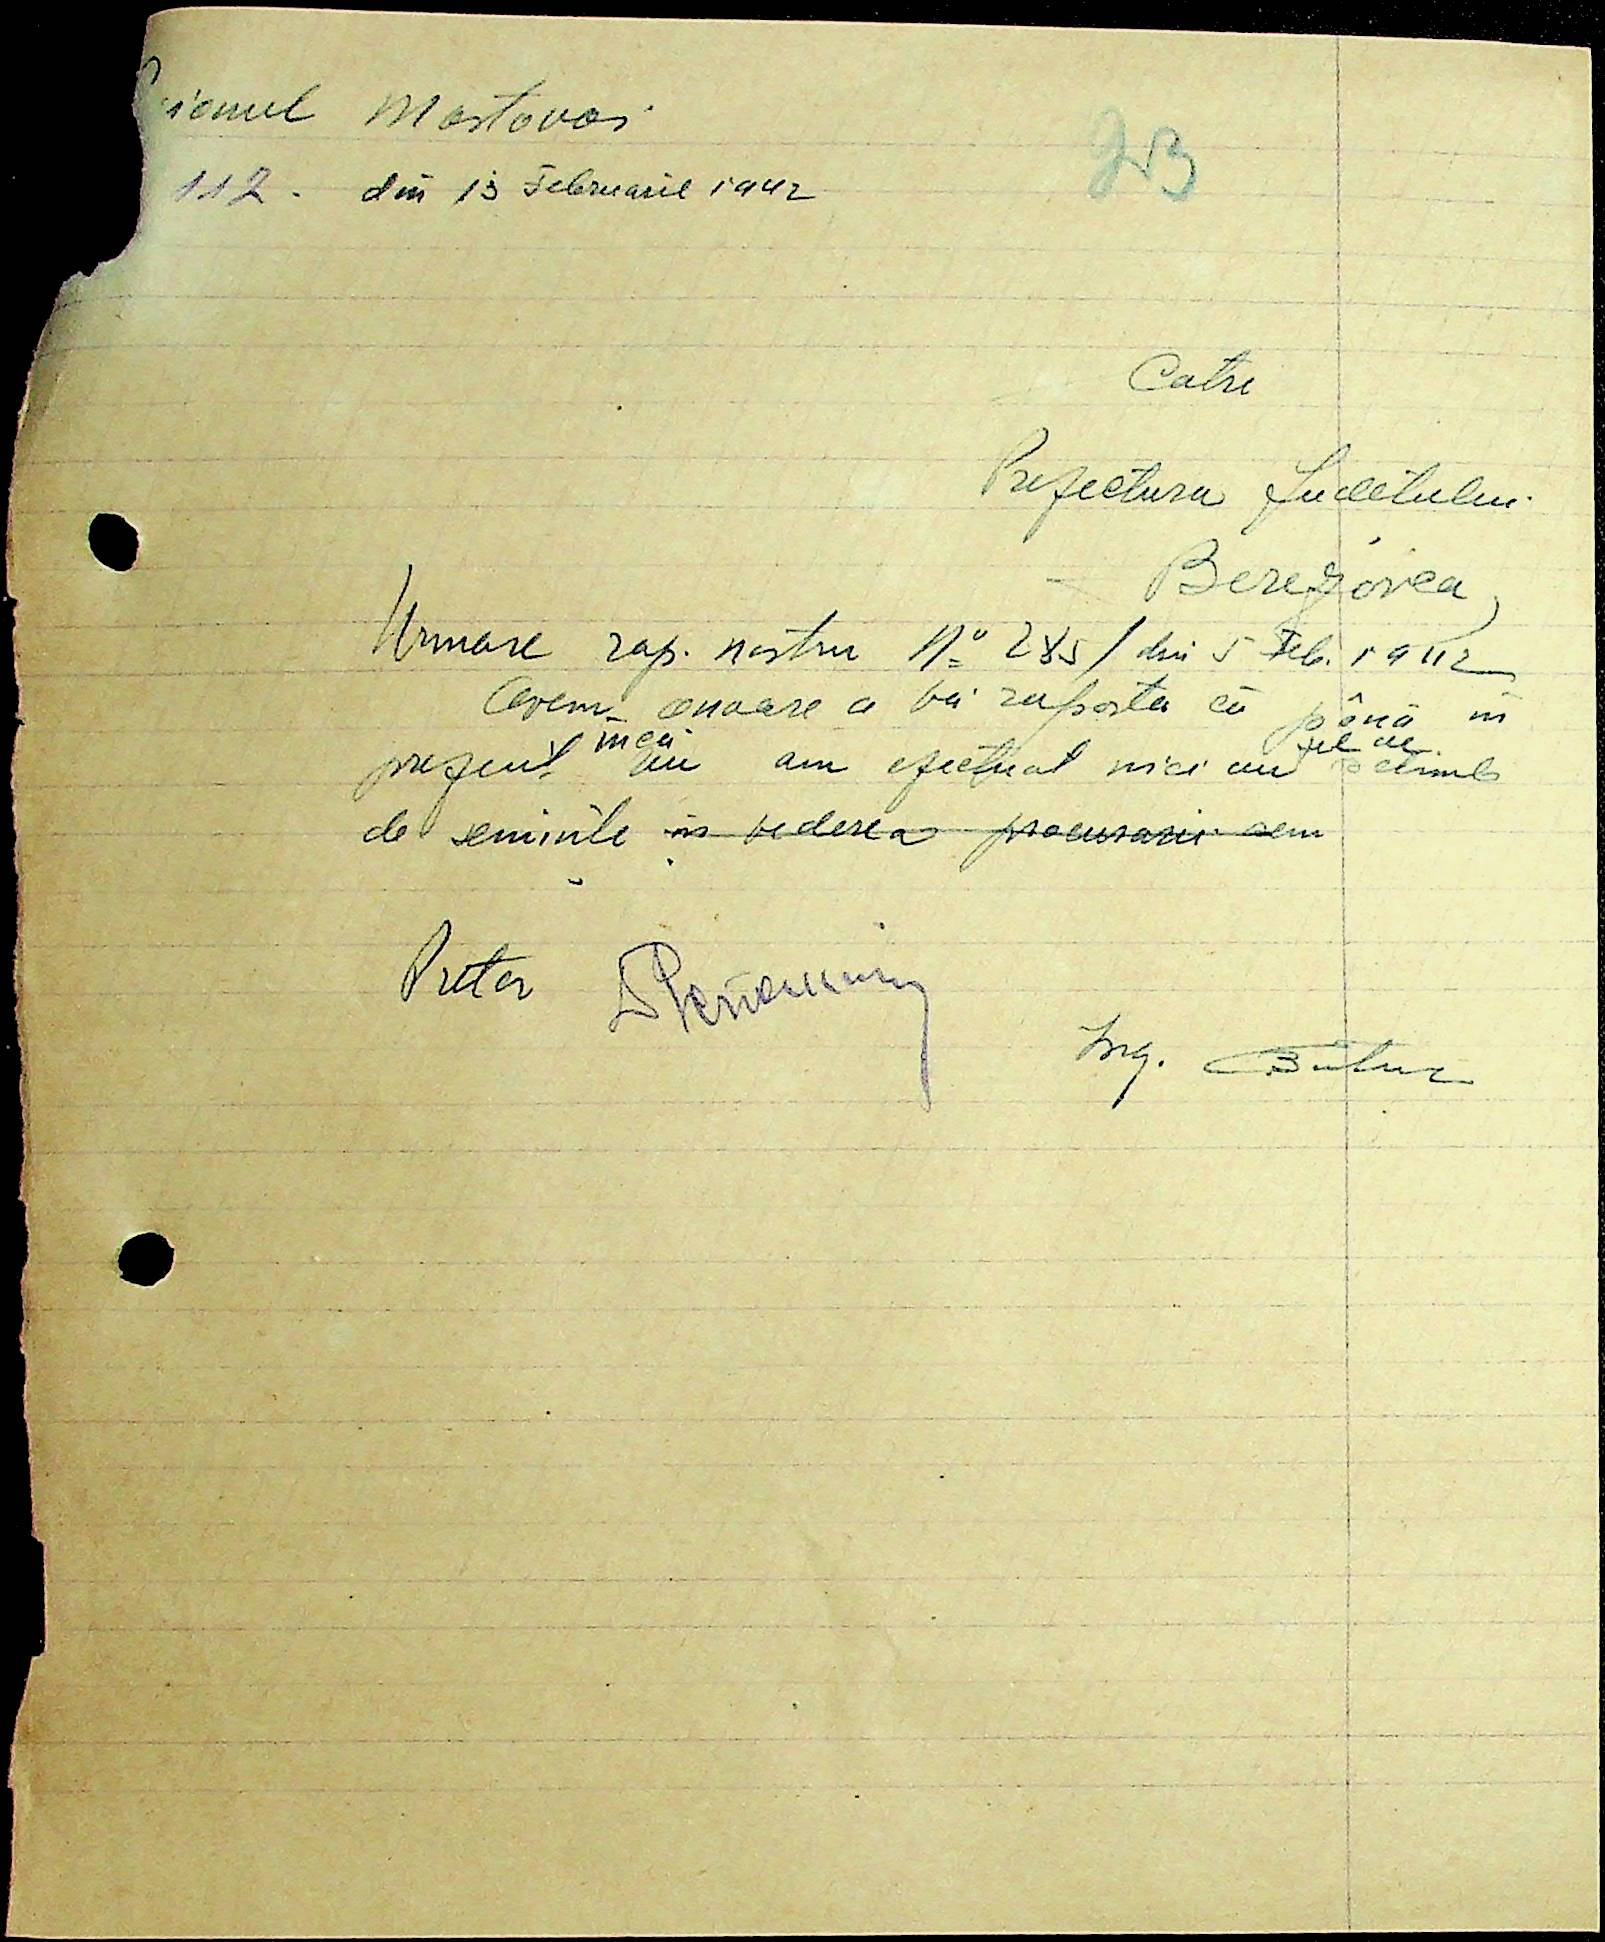 Raionul Mostovoi
112. din 13 Februarie 1942
Catre
Prefectura Judetului
Berezovca
Urmare rap. nostru No 285/din 5 Feb. 1942
Avem onoare a vă raporta că până in
prezent încă nu am efectuat nici un fel de schimb
de seminte in vederea procurarii sem
Pretor
Ing.